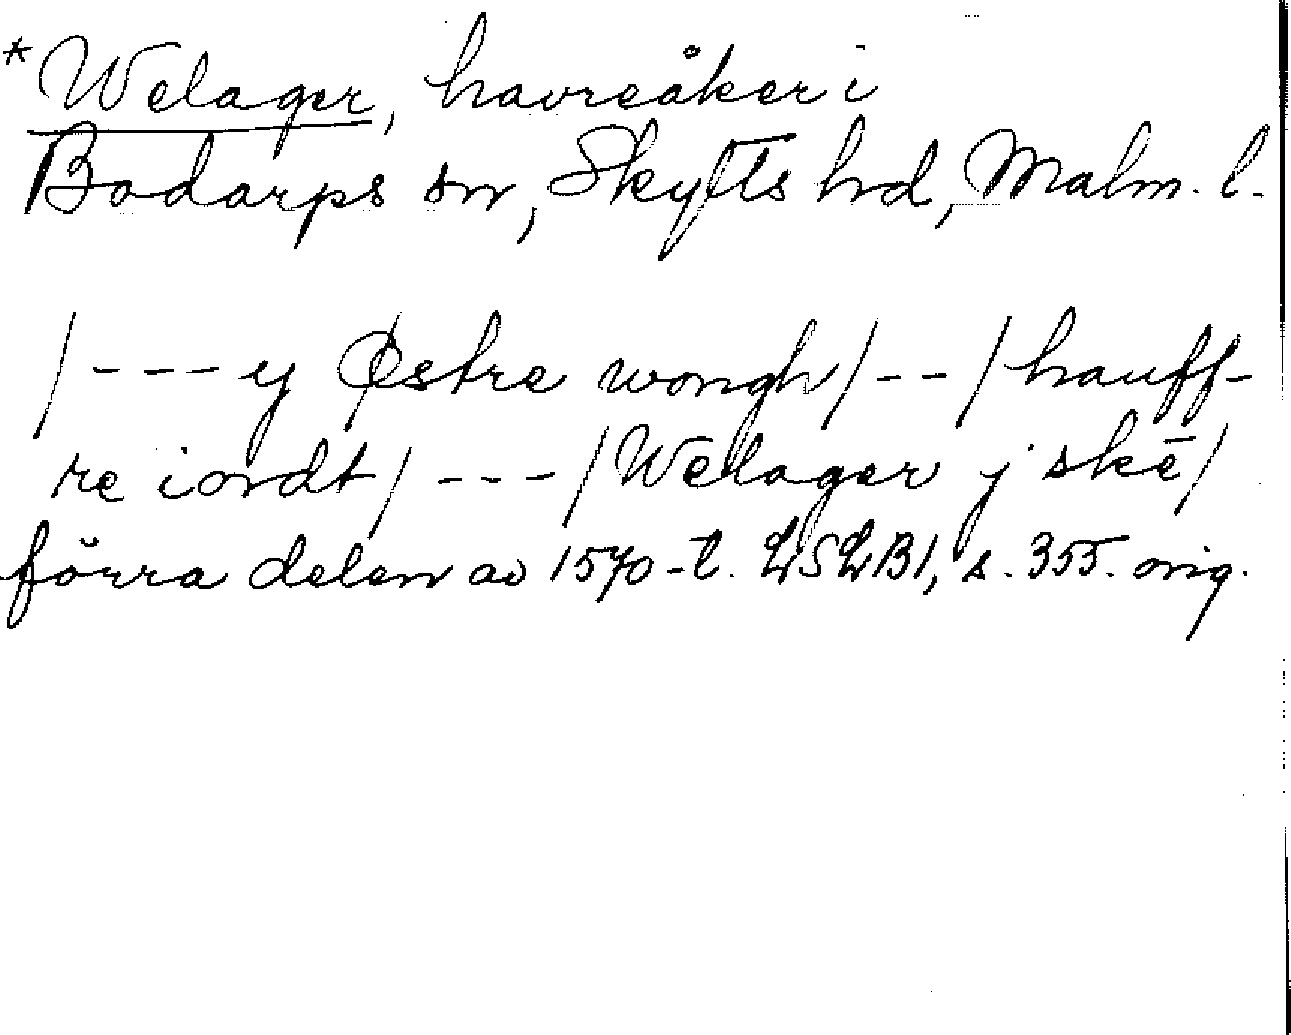 *Welager, havreåker i
Bodarps sn, Skytts hd, Malm. l.
/---y Østre wongh/--/hauff-
re iordt/---/Welager j skē/
förra delen av 1570-t. LSLB1, s. 355. orig.